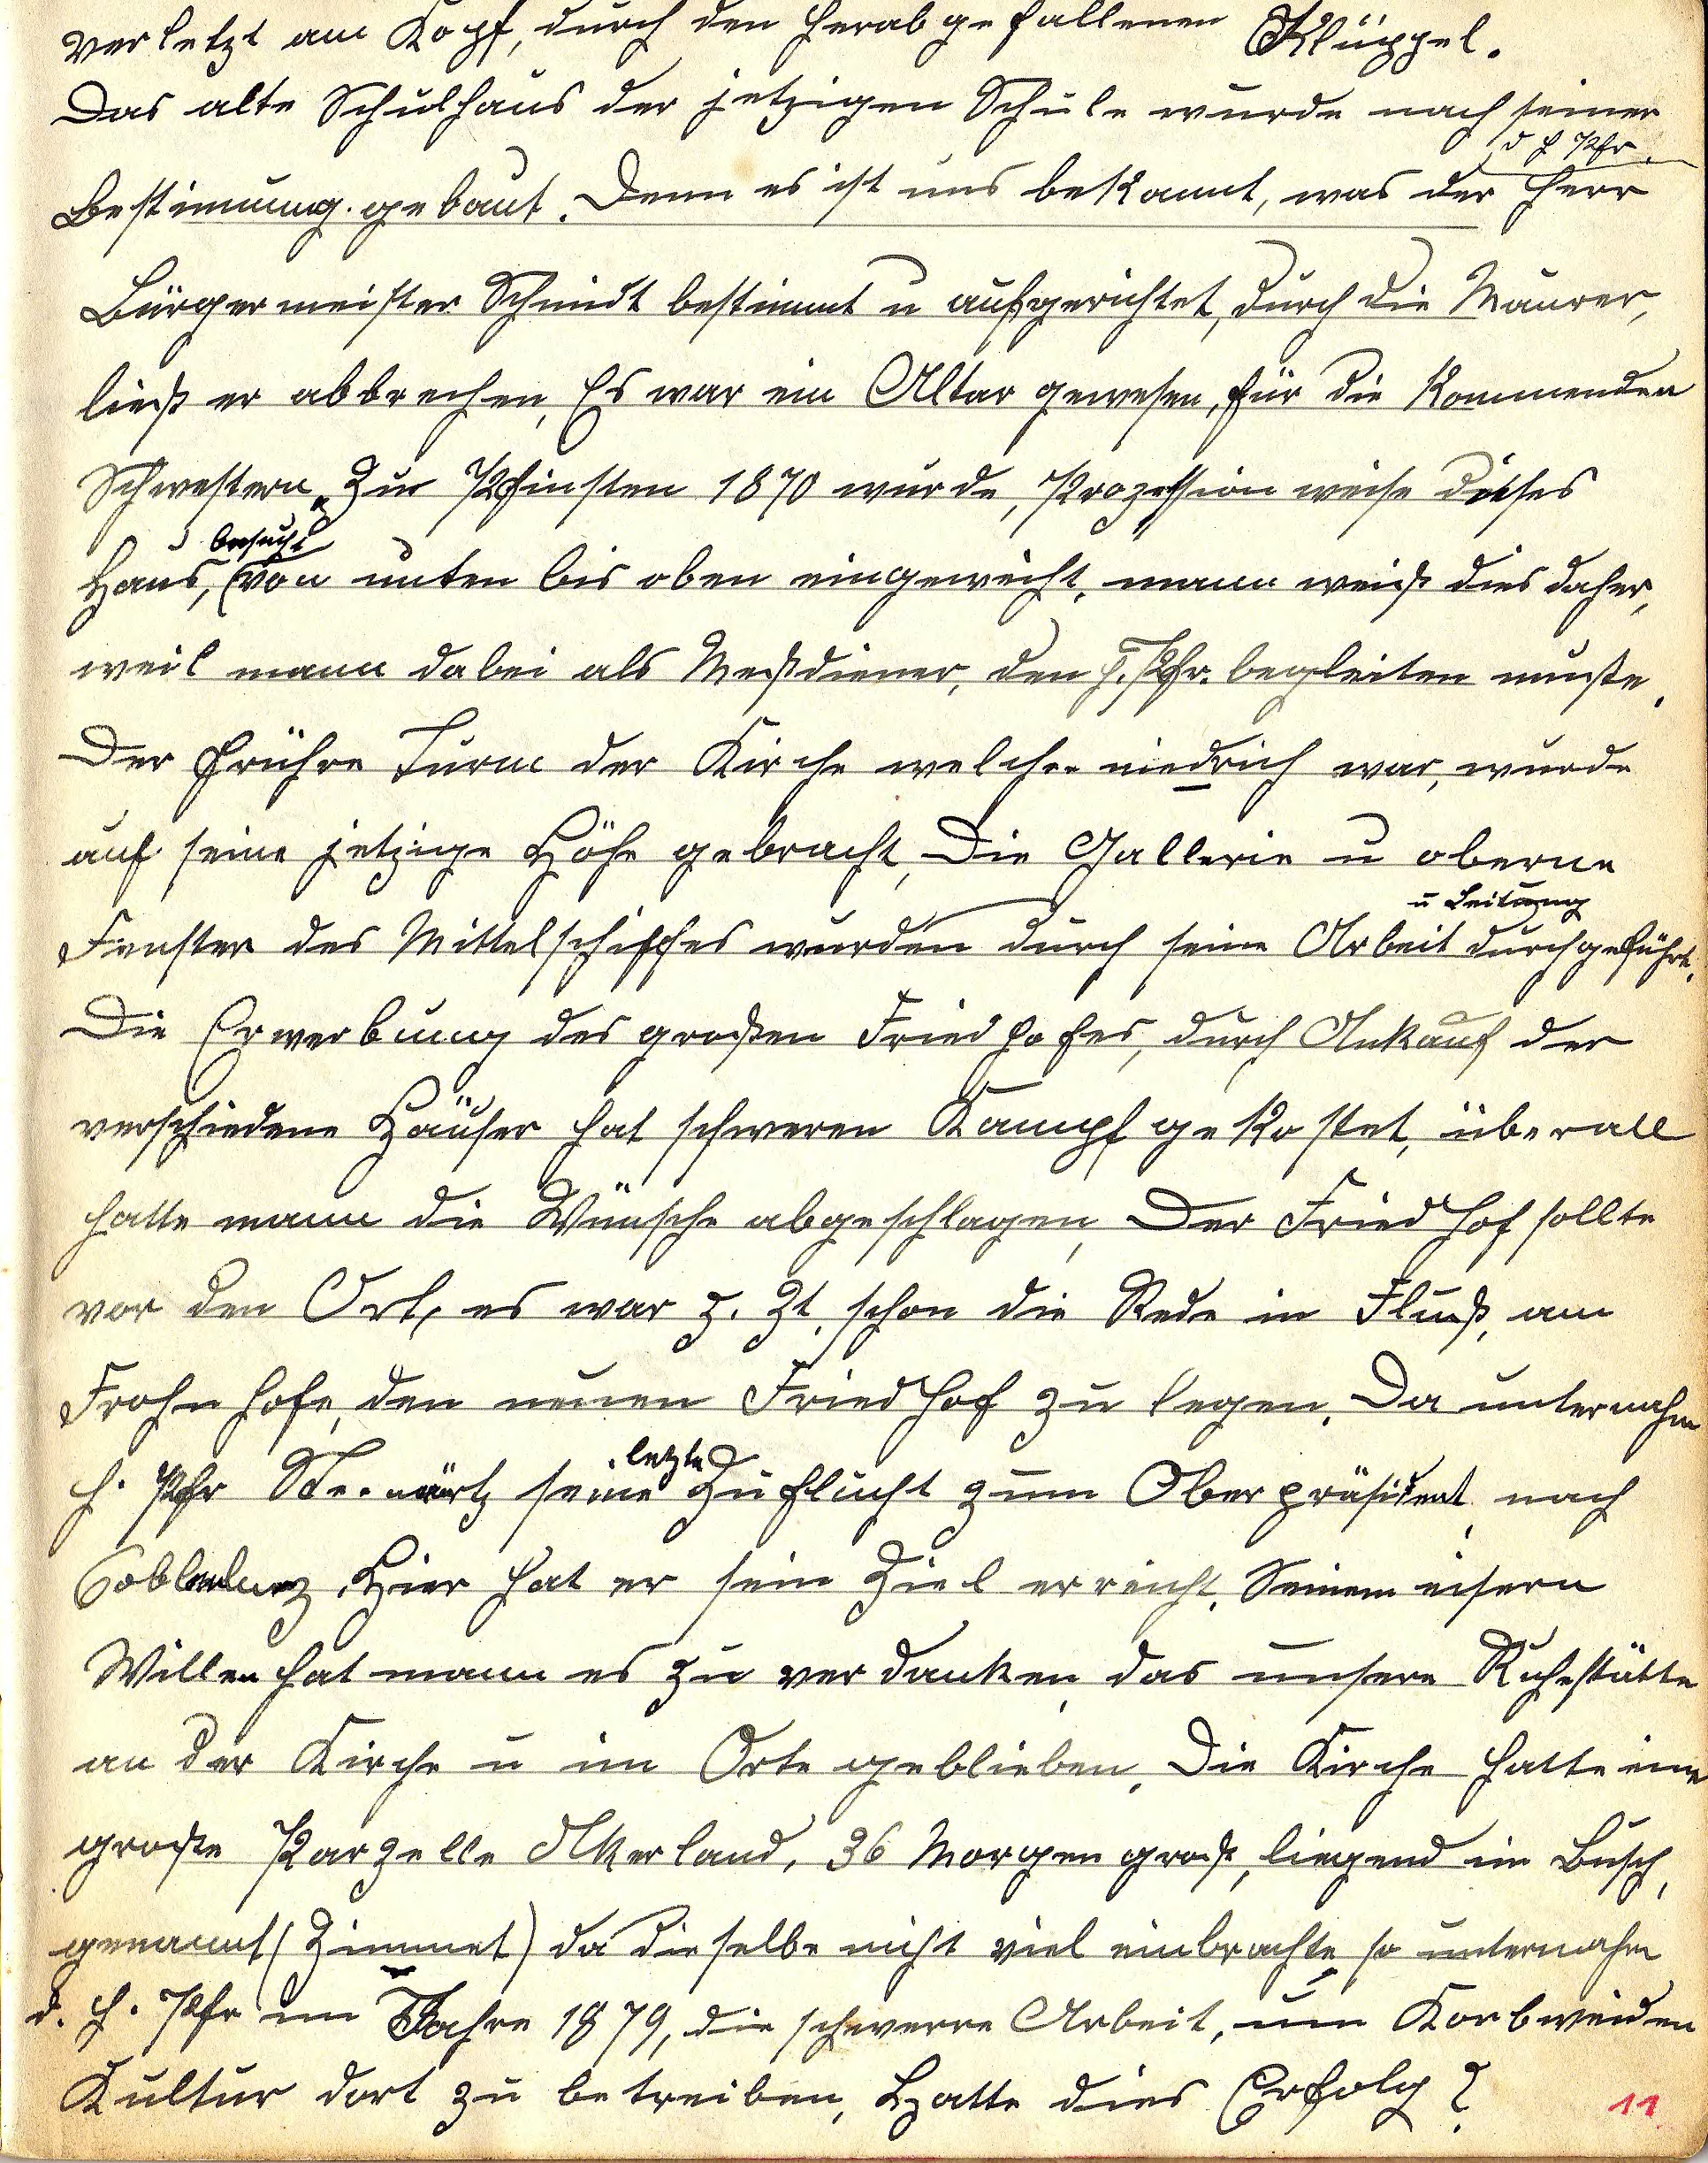 verletzt am Kopf, durch den herabgefallenen Klüppel.
Das alte Schulhaus der jetzigen Schule wurde nach seiner
d H Pfr.
Bestimmung gebaut. Denn es ist uns bekannt, was der Herr
Bürgermeister Schmidt bestimmt u aufgerichtet, durch die Maurer,
ließ er abbrechen, Es war ein Altar gewesen, für die kommenden
Schwestern. Zur Pfinsten 1870 wurde, Prozession weise dieses
besucht
Haus, von unten bis oben eingeweiht, mann weiß dies daher,
weil mann dabei als Meßdiener, den H. Pfr. begleiten mußte.
Der frühre Turm der Kirche welcher niedrich war, wurde
auf seine jetzige Höhe gebracht, Die Gallerie u oberne
u Leitung
Fenster des Mittelschiffes wurden durch seine Arbeit durchgeführt.
Die Erwerbung des großen Friedhofes, durch Ankauf der
verschiedene Häuser hat schweren Kampf gekostet, überall
hatte mann die Wünsche abgeschlagen, Der Friedhof sollte
vor den Ort, es war z. Zt. schon die Rede in Fluß, am
Frohnhofe, den neuen Friedhof zu legen. Da unternahm
letzte
H. Pfr seine Zuflucht zum Oberpräsident nach
Hier hat er sein Ziel erreicht. Seinem eisern
Willen hat mann es zu verdanken das unsere Ruhestätte
an der Kirche u im Orte geblieben. Die Kirche hatte eine
große Parzelle Akerland, 36 Morgen groß, liegend im Busch,
genannt (Zimmet) da dieselbe nicht viel einbrachte so unternahm
d. H. Pfr im Jahre 1879, die schwerre Arbeit, um Korbweiden
Kultur dort zu betreiben, Hatte dies Erfolg?
11